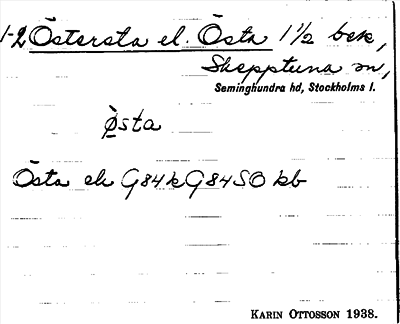 1-2 Östersta el. Östa 1½ bck,
Skepptuna sn,
Seminghundra hd, Stockholms l.
östa
Östa ek G84k G84SO kb
KARIN OTTOSSON 1938.